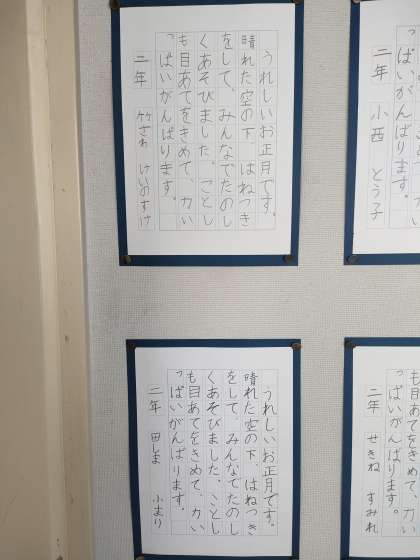 うれしいお正月です。
晴れた空の下、はねつき
をして、みんなでたのし
くあそびました。ことし
も目あてをきめて、力い
っぱいがんばります。
二年 竹ざわ けいのすけ
っぱいがんばります。
二年 小西 とう子
うれしいお正月です。
晴れた空の下、はねつき
をして、みんなでたのし
くあそびました。ことし
も目あてをきめて、力い
っぱいがんばります。
二年 田しま ふまり
も目あてをきめて、力い
っぱいがんばります。
二年 せきね すみれ